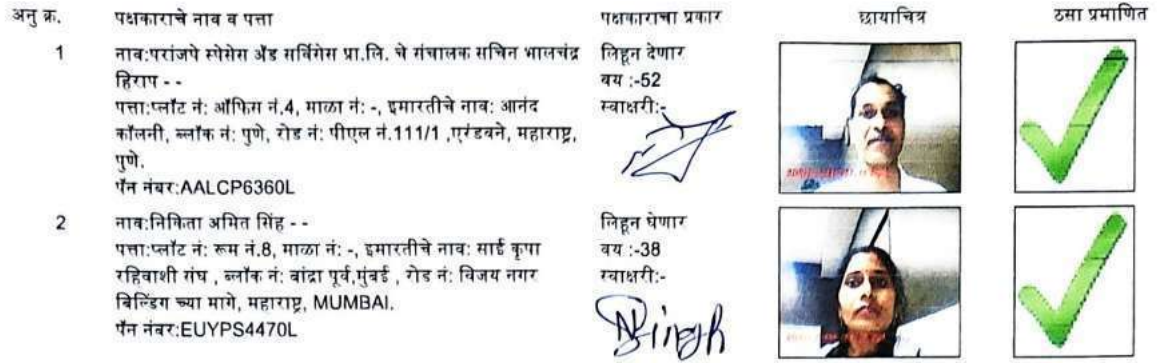 अनु क्र. पक्षकाराचे नाव व पत्ता पक्षकाराचा प्रकार छायाचित्र ठसा प्रमाणित
1 नाव:परांजपे स्पेसेस अँड सर्विगेस प्रा.लि. चे संचालक सचिन भालचंद्र
हिराप - -
पत्ता:प्लॉट नं: ऑफिस नं.4, माळा नं: -, इमारतीचे नाव: आनंद
कॉलनी, ब्लॉक नं: पुणे, रोड नं: पीएल नं.111/1 ,एरंडवने, महाराष्ट्र,
पुणे.
पॅन नंबर:AALCP6360L
लिहून देणार
वय :-52
स्वाक्षरी:-
2 नाव:निकिता अमित सिंह - -
पत्ता:प्लॉट नं: रूम नं.8, माळा नं: -, इमारतीचे नाव: साई कृपा
रहिवाशी संघ , ब्लॉक नं: बांद्रा पूर्व,मुंबई , रोड नं: विजय नगर
बिल्डिंग च्या मागे, महाराष्ट्र, MUMBAI.
पॅन नंबर:EUYPS4470L
लिहून घेणार
वय :-38
स्वाक्षरी:-
NSingh